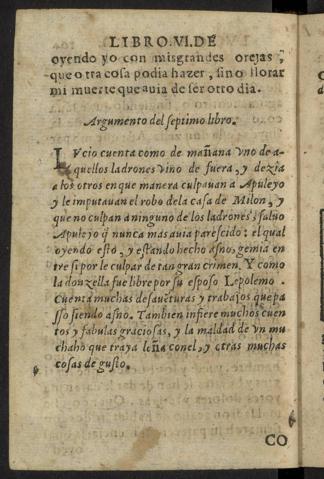 LIBRO.VI.DE
oyendo yo con misgrandes orejas,
que o tra cosa podia hazer, sino llorar
mi muerte que auia de ser otro dia.
Argumento del septimo libro.
LVcio cuenta como de mañana vno de a-
quellos ladrones vino de fuera, y dezia
a los otros en que manera culpauan a Apuleyo
y le imputauan el robo dela casa de Milon, y
que no culpan a ninguno de los ladrones: saluo
Apuleyo q̃ nunca mas auia parescido: el qual
oyendo esto, y estando hecho asno, gemia en
tre si por le culpar de tan gran crimen. Y como
la donzella fue libre por su esposo Lepolemo.
Cuenta muchas desauẽturas y trabajos que pa
sso siendo asno. Tambien infiere muchos cuen
tos y fabulas graciosas, y la maldad de vn mu
chaho que traya leña conel, y otras muchas
cosas de gusto.
CO